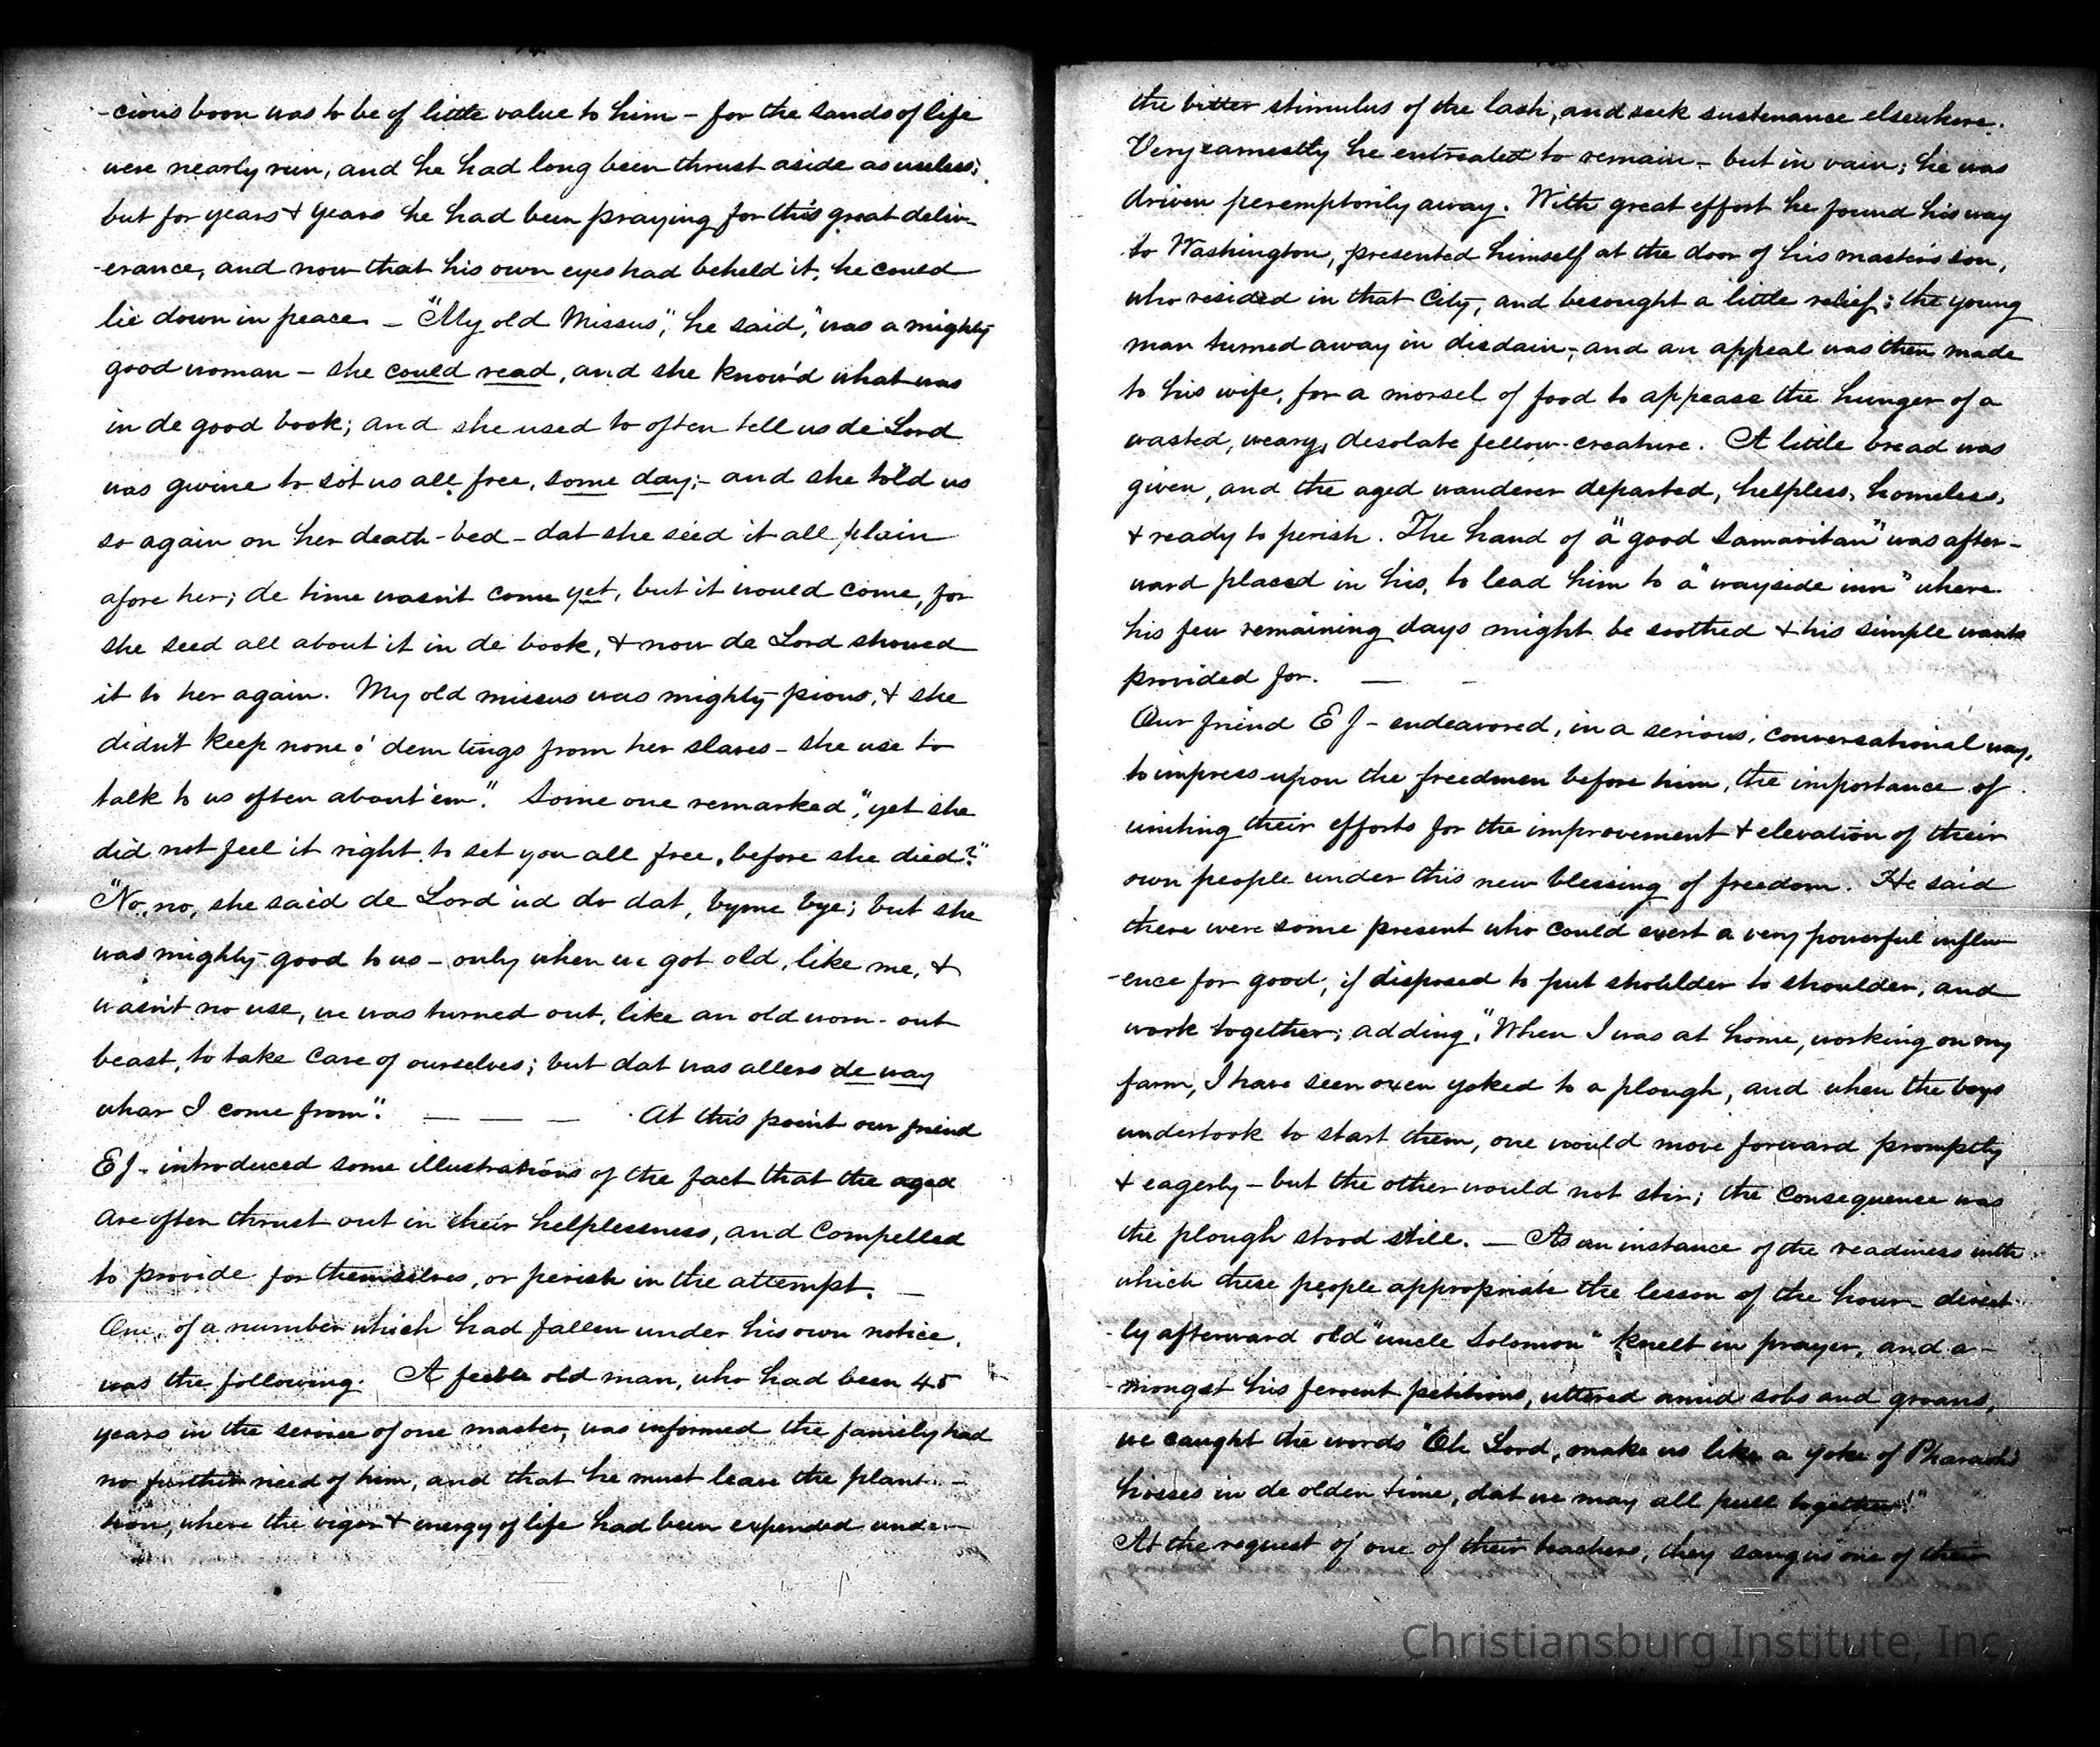 -cious boon was to be of little value to him - for the sands of life
were nearly run, and he had long been thrust aside as useless;
but for years & years he had been praying for this great deliv-
-erance, and now that his own eyes had beheld it, he could
lie down in peace - "My old Missus", he said, "was a mighty
good woman - she could read, and she know'd what was
in de good book; and she used to often tell us de Lord
was gwine to sot us all free, some day; - and she told us
so again on her death-bed - dat she seed it all plain
afore her; de time wasn't come yet, but it would come, for
she seed all about it in de book, & now de Lord showed
it to her again. My old missus was mighty pious, & she
didn't keep none o' dem tings from her slaves - she use to
talk to us often about 'em". Some one remarked, "yet she
did not feel it right to set you all free, before she died?"
"No, no, she said de Lord 'ud do dat, byme bye; but she
was mighty good to us - only when we got old, like me, &
wasn't no use, we was turned out, like an old worn-out
beast, to take care of ourselves; but dat was allers de way
whar I come from". — — — At this point our friend
EJ - introduced some illustrations of the fact that the aged
are often thrust out in their helplessness, and compelled
to provide for themselves, or perish in the attempt. —
One, of a number which had fallen under his own notice,
was the following. A feeble old man, who had been 45
years in the service of one master, was informed the family had
no further need of him, and that he must leave the planta-
tion, where the vigor & energy of life had been expended under
the bitter stimulus of the lash, and seek sustenance elsewhere.
Very earnestly he entreated to remain - but in vain; he was
driven peremptorily away. With great effort he found his way
to Washington, presented himself at the door of his master's son,
who resided in that City, and besought a little relief; the young
man turned away in disdain, and an appeal was then made
to his wife, for a morsel of food to appease the hunger of a
wasted, weary, desolate fellow-creature. A little bread was
given, and the aged wanderer departed, helpless, homeless,
& ready to perish. The hand of "a good Samaritan" was after-
ward placed in his, to lead him to a "wayside inn" where
his few remaining days might be soothed & his simple wants
provided for. — -
Our friend E J - endeavored, in a serious, conversational way,
to impress upon the freedmen before him, the importance of
uniting their efforts for the improvement & elevation of their
own people under this new blessing of freedom. He said
there were some present who could exert a very powerful influ-
-ence for good, if disposed to put shoulder to shoulder, and
work together; adding, "When I was at home, working on my
farm, I have seen oxen yoked to a plough, and when the boys
undertook to start them, one would move forward promptly
& eagerly - but the other would not stir; the consequence was
the plough stood still. — As an instance of the readiness with
which these people appropriate the lesson of the hour - direct-
-ly afterward old "uncle Solomon" knelt in prayer, and a-
-mongst his fervent petitions, uttered amid sobs and groans,
we caught the words "Oh Lord, make us like a yoke of Pharaoh's
hosses in de olden time, dat we may all pull together!"
At the request of one of their teachers, they sang us one of their
Christiansburg Institute, Inc.